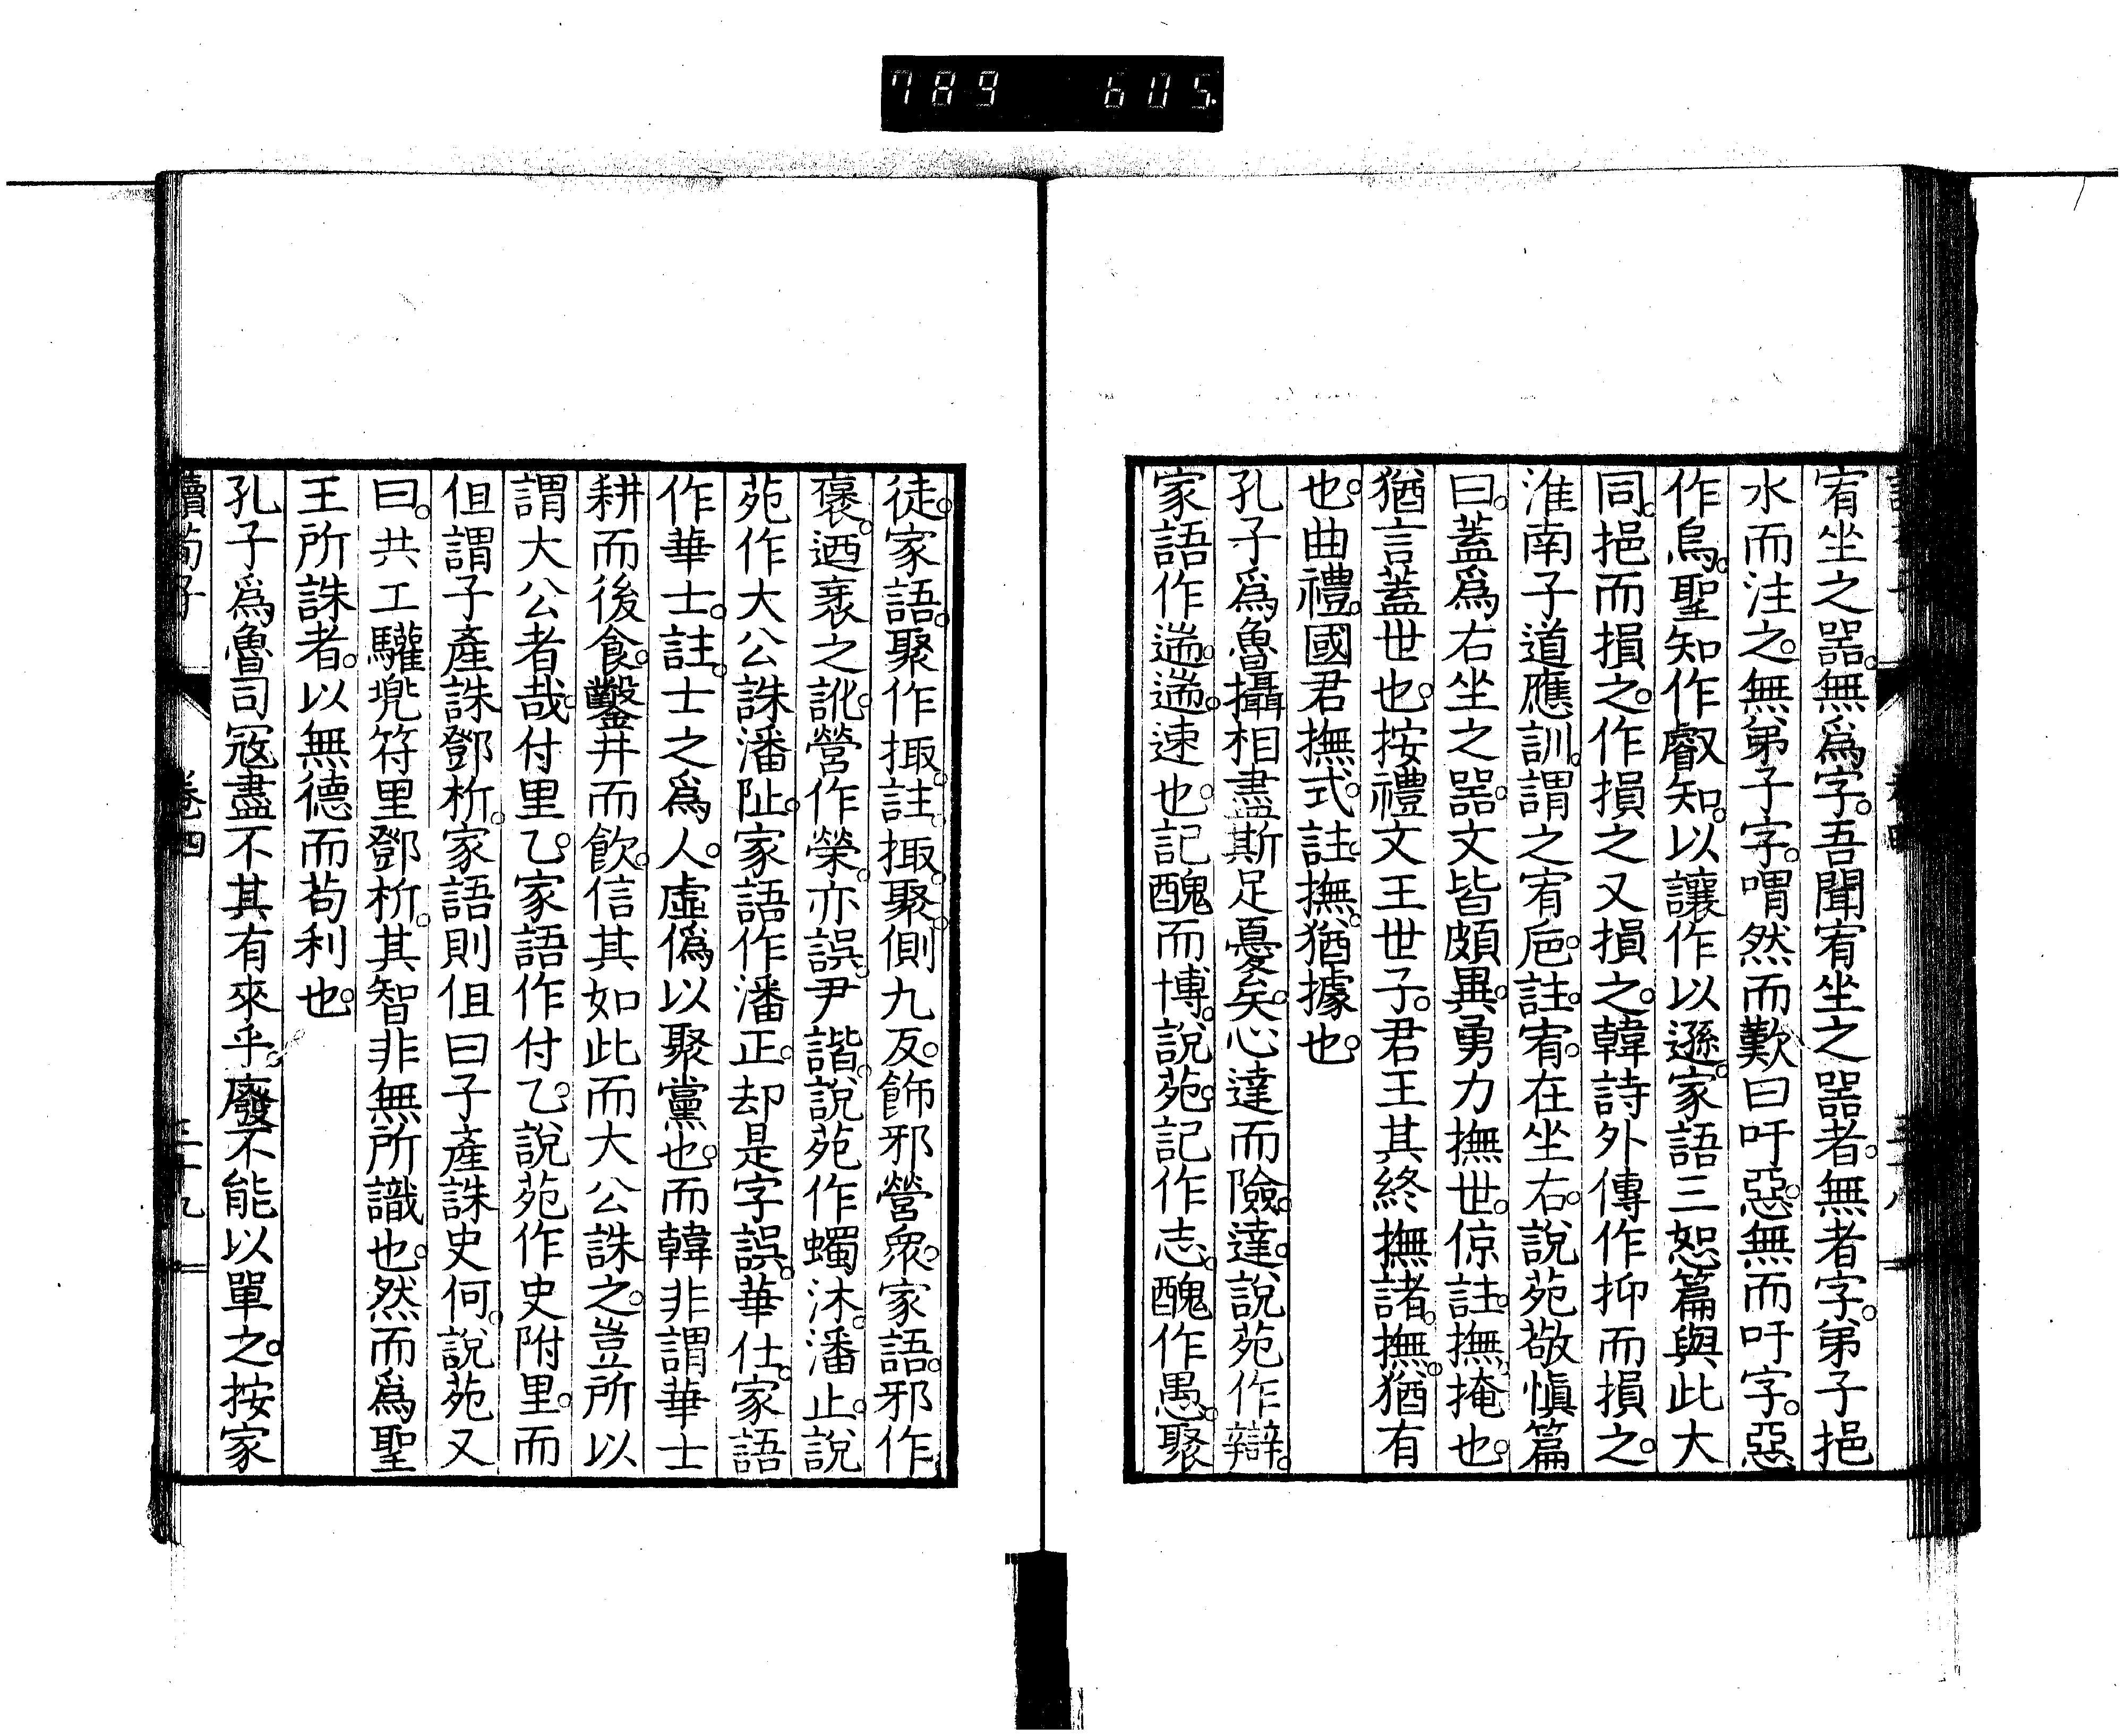 789 605
宥坐之器。無爲字。吾聞宥坐之器者。無者字。弟子挹
水而注之。無弟子字。喟然而歎曰吁惡。無而吁字。惡
作烏。聖知作叡知。以讓作以遜。家語三恕篇與此大
同。挹而損之。作損之又損之。韓詩外傳作抑而損之。
淮南子道應訓。謂之宥巵。註。宥。在坐右。說苑敬愼篇
曰。蓋爲右坐之器。文皆頗異。勇力撫世。倞註。撫。掩也。
猶言蓋世也。按禮文王世子。君王其終撫諸。撫。猶有
也。曲禮。國君撫式。註。撫。猶據也。
孔子爲魯攝相盡斯足憂矣。心達而險。達。說苑作辯。
家語作遄。遄。速也。記醜而博。說苑。記作志。醜作愚。聚
徒。家語。聚作掫。註。掫。聚。側九反。飾邪營衆。家語。邪作
襃。迺袤之訛。營作榮。亦誤。尹諧。說苑作蠋沐。潘止。說
苑作大公誅潘阯。家語作潘正。却是字誤。華仕。家語
作華士。註。士之爲人。虛僞以聚黨也。而韓非謂華士
耕而後食。鑿井而飲。信其如此而大公誅之。豈所以
謂大公者哉。付里乙。家語作付乙。說苑作史附里。而
但謂子產誅鄧析。家語則但曰子產誅史何。說苑又
曰。共工驩兠符里鄧析。其智非無所識也。然而爲聖
王所誅者。以無德而苟利也。
孔子爲魯司冦盡不其有來乎。廢不能以單之。按家
讀荀子 卷四 三十九